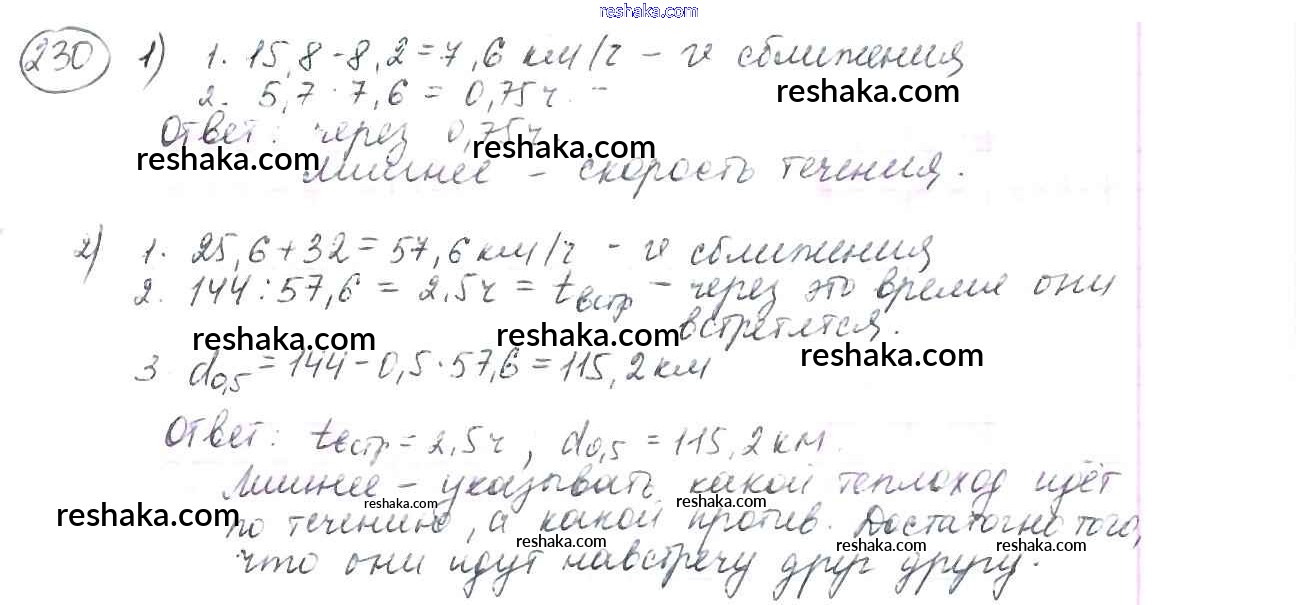 reshaka.com
230 1) 1. 15,8 - 8,2 = 7,6 км/ч - v сближения
reshaka.com
2. 5,7 · 7,6 = 0,75 ч. -
Ответ: через 0,75 ч.
reshaka.com reshaka.com
Лишнее - скорость течения.
2) 1. 25,6 + 32 = 57,6 км/ч - v сближения
2. 144 : 57,6 = 2,5 ч = tвстр - через это время они
встретятся.
reshaka.com reshaka.com reshaka.com
3 d0,5 = 144 - 0,5 · 57,6 = 115,2 км
Ответ: tвстр = 2,5 ч, d0,5 = 115,2 км.
Лишнее - указывать какой теплоход идёт
reshaka.com reshaka.com reshaka.com
по течению, а какой против. Достаточно того,
reshaka.com reshaka.com reshaka.com
что они идут навстречу друг другу.